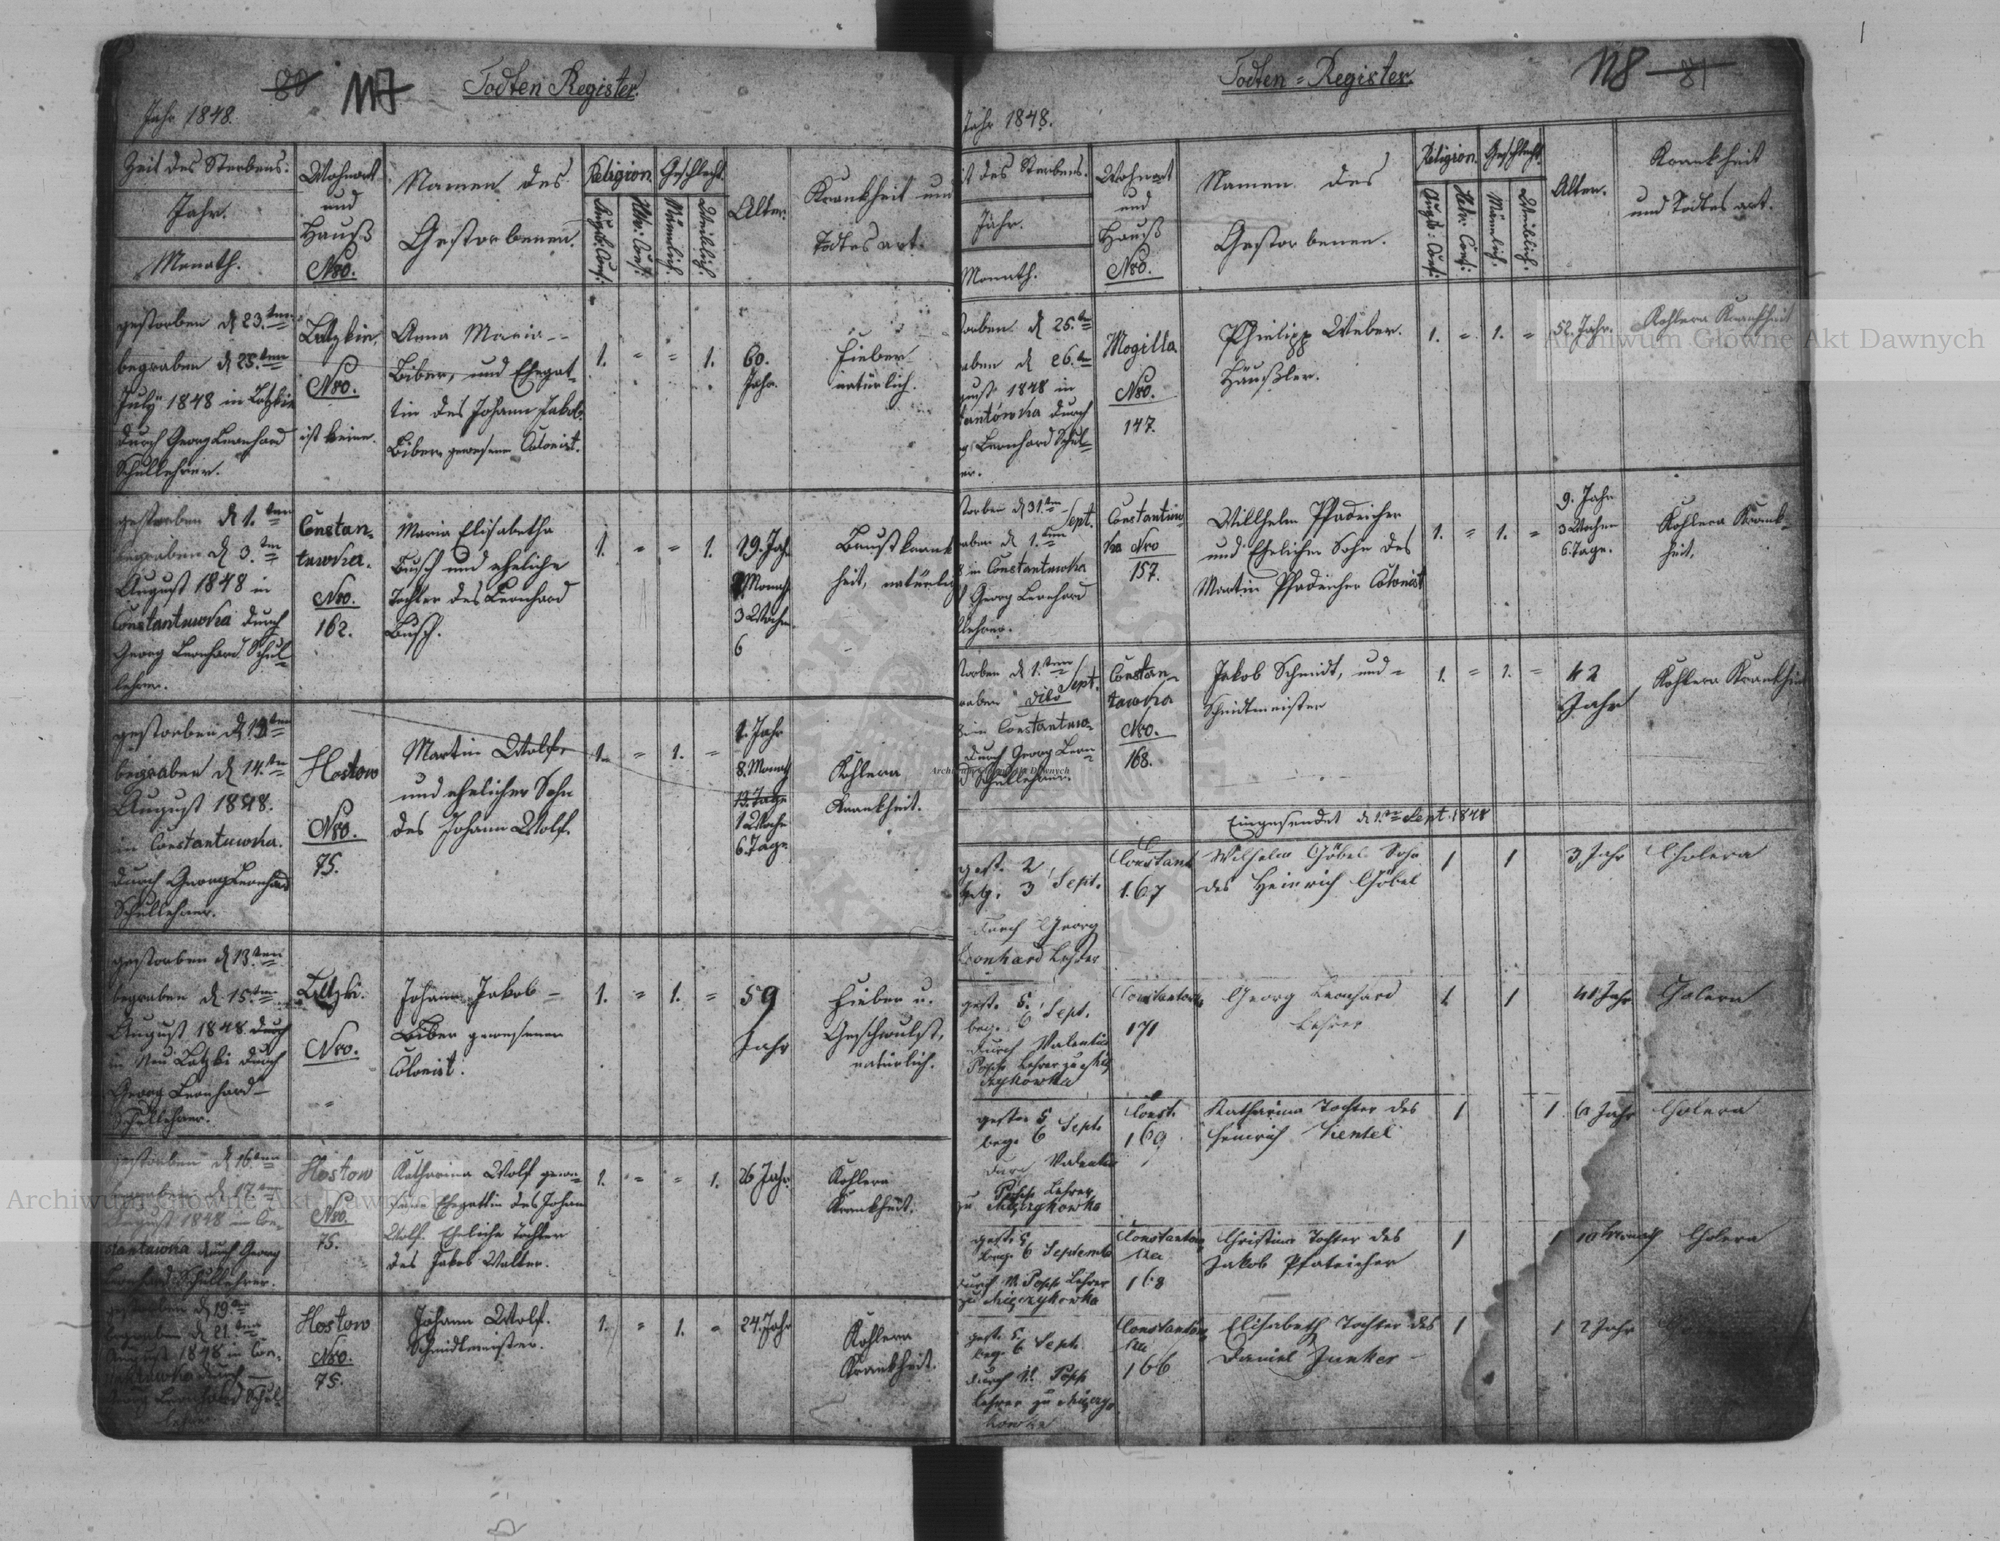 80 117 Todten Register.
Jahr 1848.
Zeit des Sterbens.
Jahr.
Monath.
Wohnort
und
Hauß
Nro.
Namen des
Gestorbenen.
Religion.
Augsb: Conf:
Helv: Conf:
Geschlecht.
Männlich.
Weiblich.
Alter.
Krankheit und
Todtes art.
gestorben d 23.ten
begraben d 25.ten
July 1848 in Lotzkie
durch Georg Leonhard
Schullehrer.
Nro.
ist keine.
Anna Maria
Biber, und Ehegat-
tin des Johann Jakob
Biber gewesener Colonist.
1. " " 1.
60.
Jahr.
Fieber
natürlich.
gestorben d 1.ten
begraben d 3.ten
August 1848 in
Constantuwka durch
Georg Leonhard Schul-
lehrer.
Constan-
tuwka.
Nro.
162.
Maria Elisabetha
Busch und eheliche
Tochter des Leonhard
Busch.
1. " " 1.
19. Jah
Monath
3 Wochen
6
Brustkrank
heit, natürlich
gestorben d
begraben d 14.ten
August 1848.
in Constantuwka.
durch Georg Leonhard
Schullehrer.
Hostow
Nro.
75.
Martin Wolf,
und ehelicher Sohn
des Johann Wolf.
1. " 1. "
1. Jahr
8. Monath
13. Tage
1 Woche
6. Tage
Kohlera
Krankheit.
gestorben d 13.ten
begraben d 15.ten
August 1848 durch
in Neu Lotzki durch
Georg Leonhard
Schullehrer.
Lotzki.
Nro.
Johann Jakob
Biber gewesener
Colonist.
1. " 1. "
59
Jahr
Fieber u.
Geschwulst,
natürlich.
gestorben d 16.ten
begraben d 17.ten
August 1848 in Con-
stantuwka durch Georg
Leonhard Schullehrer.
Hostow
Nro.
75.
Katharina Wolf gewe-
sene Ehegattin des Johann
Wolf. Eheliche Tochter
des Jakob Walter.
1. " " 1.
26 Jahr.
Kohlera
Krankheit.
gestorben d 19.ten
begraben d 21.ten
August 1848 in Con-
stantuwka durch
Georg Leonhard Schul-
lehrer
Hostow
Nro.
75.
Johann Wolf.
Schmidtmeister.
1. " 1. "
24. Jahr
Kohlera
Krankheit.
Todten = Register. 118 81
Jahr 1848.
it des Sterbens.
Jahr.
Monath.
Wohnort
und
Hauß
Nro.
Namen des
Gestorbenen.
Religion.
Augsb: Conf:
Helv: Conf:
Geschlecht.
Männlich.
Weiblich.
Alter.
Krankheit
und Todtes art.
torben d 25.te
aben d 26.te
gust 1848 in
tantowka durch
g Leonhard Schul-
er.
Mogilla
Nro.
147.
Phielipp Weber.
Häußler.
1. " 1. "
52. Jahr.
Kohlera Krankheit
torben d 31.ten
aben d 1.ten Sept.
8 in Constantuwka
Georg Leonhard
lehrer.
Constantuw
ka Nro
157.
Willhelm Pfadeicher
und Ehelicher Sohn des
Martin Pfadeicher Colonist
1. " 1. "
9. Jahr
3 Wochen
6. Tage.
Kohlera Krank-
heit.
torben d 1.ten Sept.
raben dito
8 in Constantuw-
durch Georg Leon-
d Schullehrer.
Constan-
tuwka
Nro.
168.
Jakob Schmidt, und
Schmidtmeister
1. " 1. "
42
Jahr
Kohlera Krankheit
Eingesendet d 1.ten Sept. 1848
gest. 2
beg. 3 Sept.
durch Georg
Leonhard Lehrer
Constant
167
Wilhelm Göbel Sohn
des Heinrich Göbel
1 1
3 Jahr
Cholera
gest. 5.
beg. 6 Sept.
durch Valentin
Popp Lehrer zu Mik
czykowka
Constantow
171
Georg Leonhard
Lehrer
1 1
41 Jahr
Colera
gest. 5
beg. 6 Sept
durch Valentin
Popp Lehrer
zu
Const.
169
Katharina Tochter des
Heinrich
1 1
6 Jahr
Cholera
gest. 5
beg. 6 Septemb
durch V. Popp Lehrer
zu
Constantow
ka
168
Christina Tochter des
Jakob Pfateicher
1 1
10 Monath
Cholera
gest. 5
beg. 6 Sept.
durch V. Popp
Lehrer zu
Constantow
ka
166
Elisabeth Tochter des
Daniel Junker
1 1
2 Jahr
Archiwum Główne Akt Dawnych
Archiwum Główne Akt Dawnych
Archiwum Główne Akt Dawnych